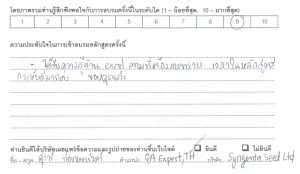 โดยภาพรวมท่านรู้สึกพึงพอใจกับการอบรมครั้งนี้ในระดับใด (1 – น้อยที่สุด, 10 – มากที่สุด)
1 2 3 4 5 6 7 8 9 10
ความประทับใจในการเข้าอบรมหลักสูตรครั้งนี้
- ได้รับความรู้ด้าน excel ตามที่ต้องการทราบ เวลาในหลักสูตร
ขอบคุณค่ะ
ท่านยินดีให้บริษัทเผยแพร่ข้อความและรูปถ่ายของท่านขึ้นเว็บไซต์ ☑ ยินดี ☐ ไม่ยินดี
ชื่อ - สกุล ตำแหน่ง QA Expert, TH บริษัท Syngenta Seed Ltd